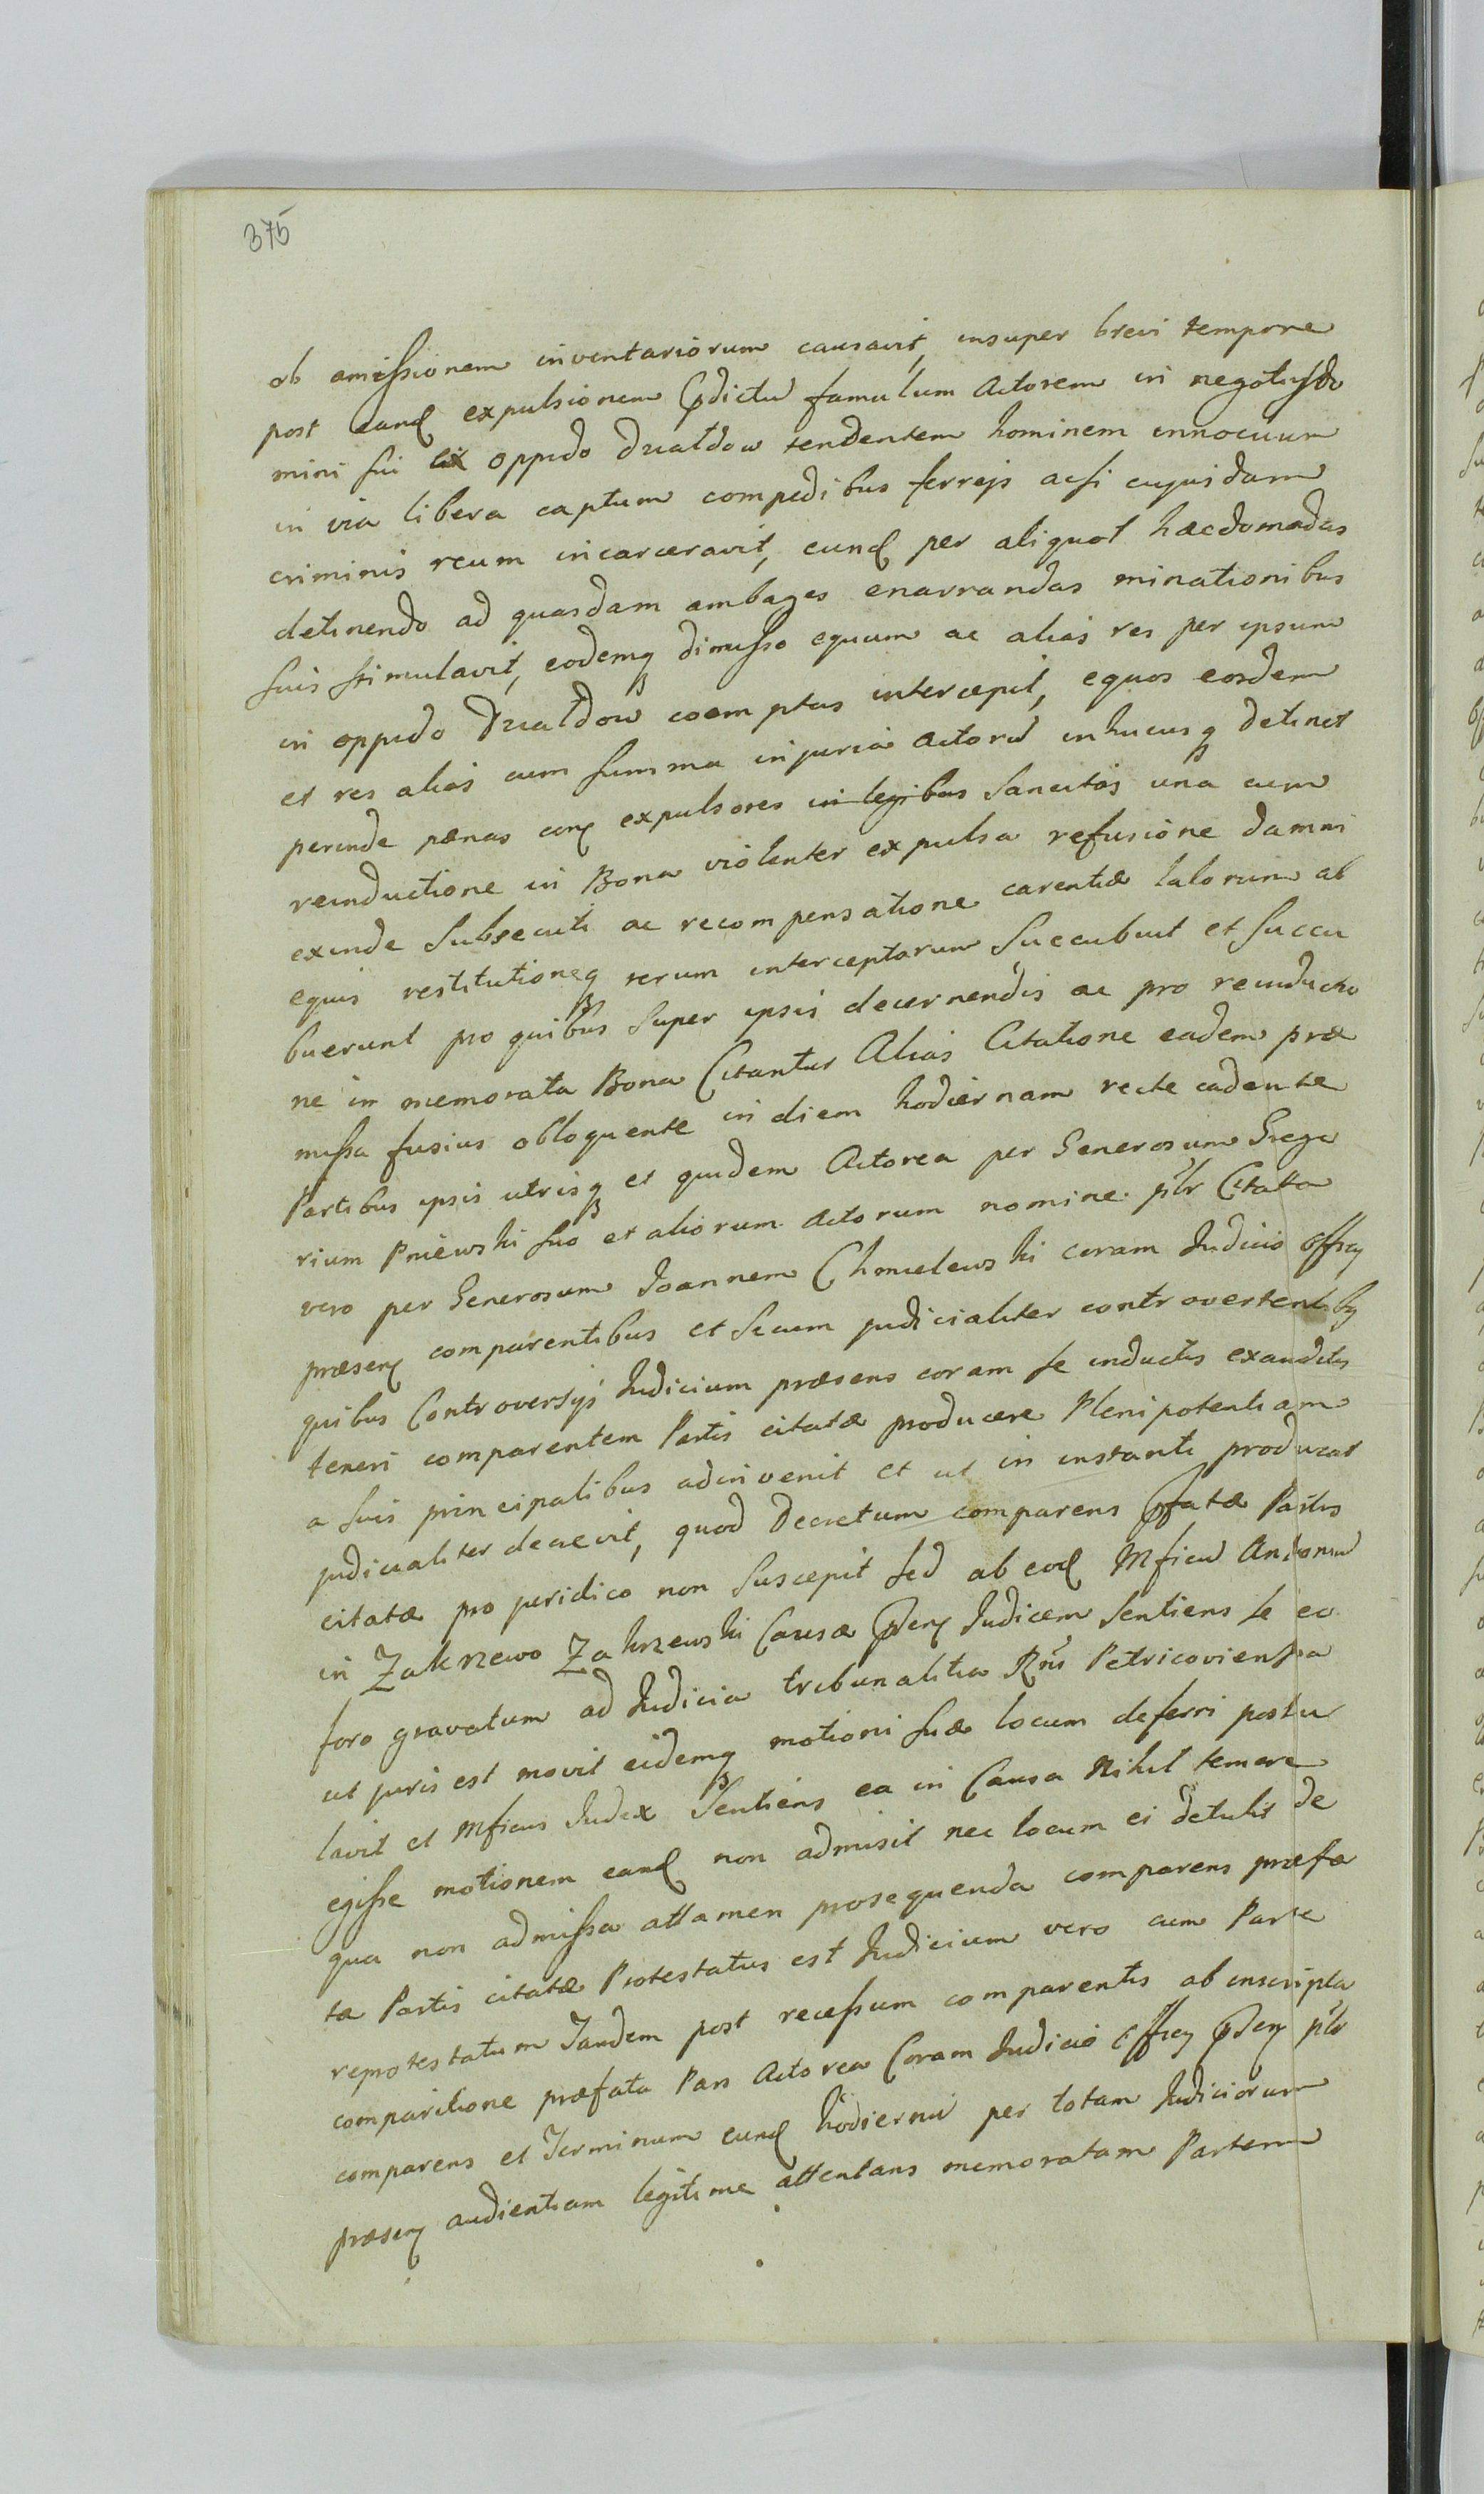 375
ob amissionem inventariorum causavit, insuper brevi tempore
post eand expulsionem Pdictu famulum Actorem in negotijs do
mini sui ex oppido Dzialdow tendentem hominem innocuum
in via libera captum compedibus ferreis acsi cujusdam
criminis reum incarceravit, eund per aliquot haebdomadas
detinendo ad quasdam ambages enarrandas minationibus
suis stimulavit, eodemq dimisso equum ac alias res per ipsum
in oppido Dzialdow coemptas intercepit, equos eosdem
et res alias cum summa injuria Actoru inhucusq detinet
perinde paenas con expulsores in legibus sancitas una cum
reinductione in Bona violenter expulsa refusione damni
exinde subsecuti ac recompensatione carentiae laborum ab
equis restitutioneq rerum interceptarum succubuit et succu
buerunt pro quibus super ipsis decernendis ac pro reinductio
ne in memorata Bona Citantur Alias Citatione eadem prae
missa fusius obloquente in diem hodiernam recte cadente
Partibus ipsis utrisq et quidem Actorea per Generosum Grego
rium Pniewski suo et aliorum Actorum nomine plr Citata
vero per Generosum Joannem Chmielewski coram Judicio Offcy
praesen comparentibus et secum judicialiter controvertentibq
quibus Controversijs Judicium praesens coram se inductis exauditis
teneri comparentem Partis citatae producere Plenipotentiam
a suis principalibus adinvenit et ut in instanti producat
judicialiter decrevit, quod Decretum comparens Pfatae Partis
citatae pro juridico non suscepit sed ab eod Mficu Antoniu
in Zakrzewo Zakrzewski Causae Psen Judicem sentiens se eo
foro gravatum ad Judicia tribunalitia Rni Petricoviensia
ut juris est movit eidemq motioni suae locum deferri postu
lavit et Mficus Judex sentiens ea in Causa Nihil temere
egisse motionem eand non admisit nec locum ei detulit de
qua non admissa attamen prosequenda comparens praefa
ta Partis citatae Protestatus est Judicium vero cum Parte
reprotestatum Tandem post recessum comparentis ab inscripta
comparitione praefata Pars Actorea Coram Judicio Offcy Psen plr
comparens et Terminum eund hodiernu per totam Judiciorum
praesen audientiam legitime attentans memoratam Partem